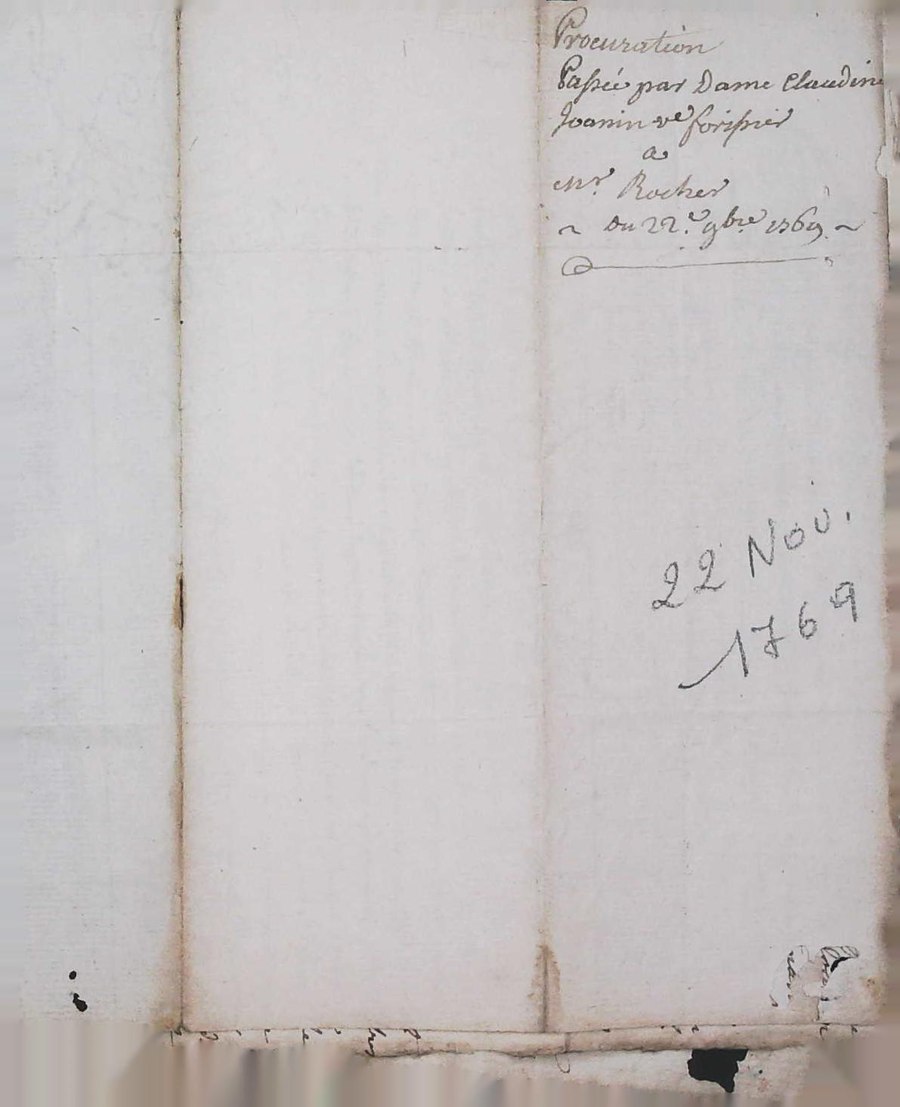 Procuration
Passée par Dame Claudine
Joanin ve forissier
a
Mr Rocher
~ Du 22.e 9bre 1769 ~
22 Nov.
1769